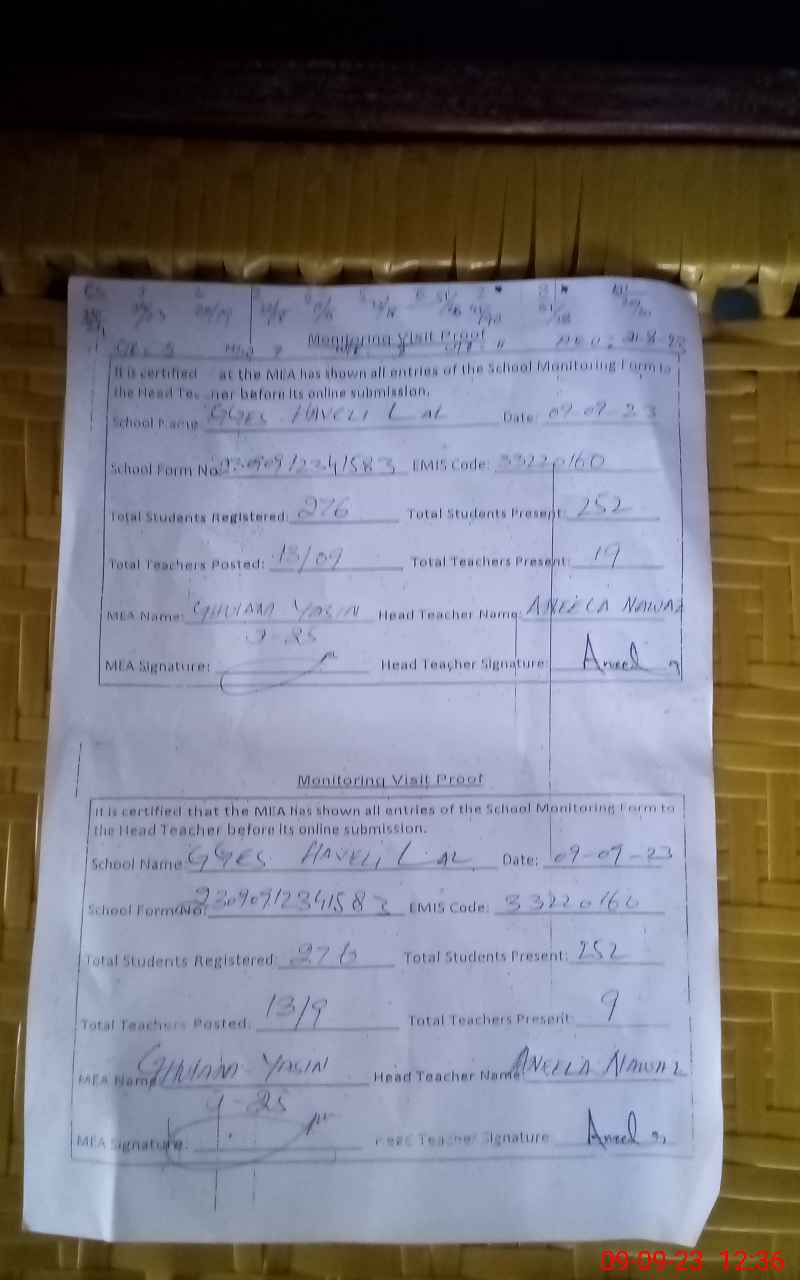 Monitoring Visit Proof
21-8-23
It is certified at the MEA has shown all entries of the School Monitoring Form to
the Head Teacher before its online submission.
School Name GGES HAVELI LAL Date: 09-09-23
School Form No: 2309091234 1583 EMIS Code: 33220160
Total Students Registered: 276 Total Students Present: 252
Total Teachers Posted: 13/09 Total Teachers Present: 19
MEA Name: GHULAM YASIN Head Teacher Name: ANEELA NAWAZ
J-25
MEA Signature: Head Teacher Signature: Aneel
Monitoring Visit Proof
It is certified that the MEA has shown all entries of the School Monitoring Form to
the Head Teacher before its online submission.
School Name GGES HAVELI LAL Date: 09-09-23
School Form No: 2309091234 1583 EMIS Code: 33220160
Total Students Registered: 276 Total Students Present: 252
Total Teachers Posted: 13/9 Total Teachers Present: 9
MEA Name GHULAM YASIN Head Teacher Name: ANEELA NAWAZ
J-25
MEA Signature: Head Teacher Signature Aneel
09-09-23 12:36